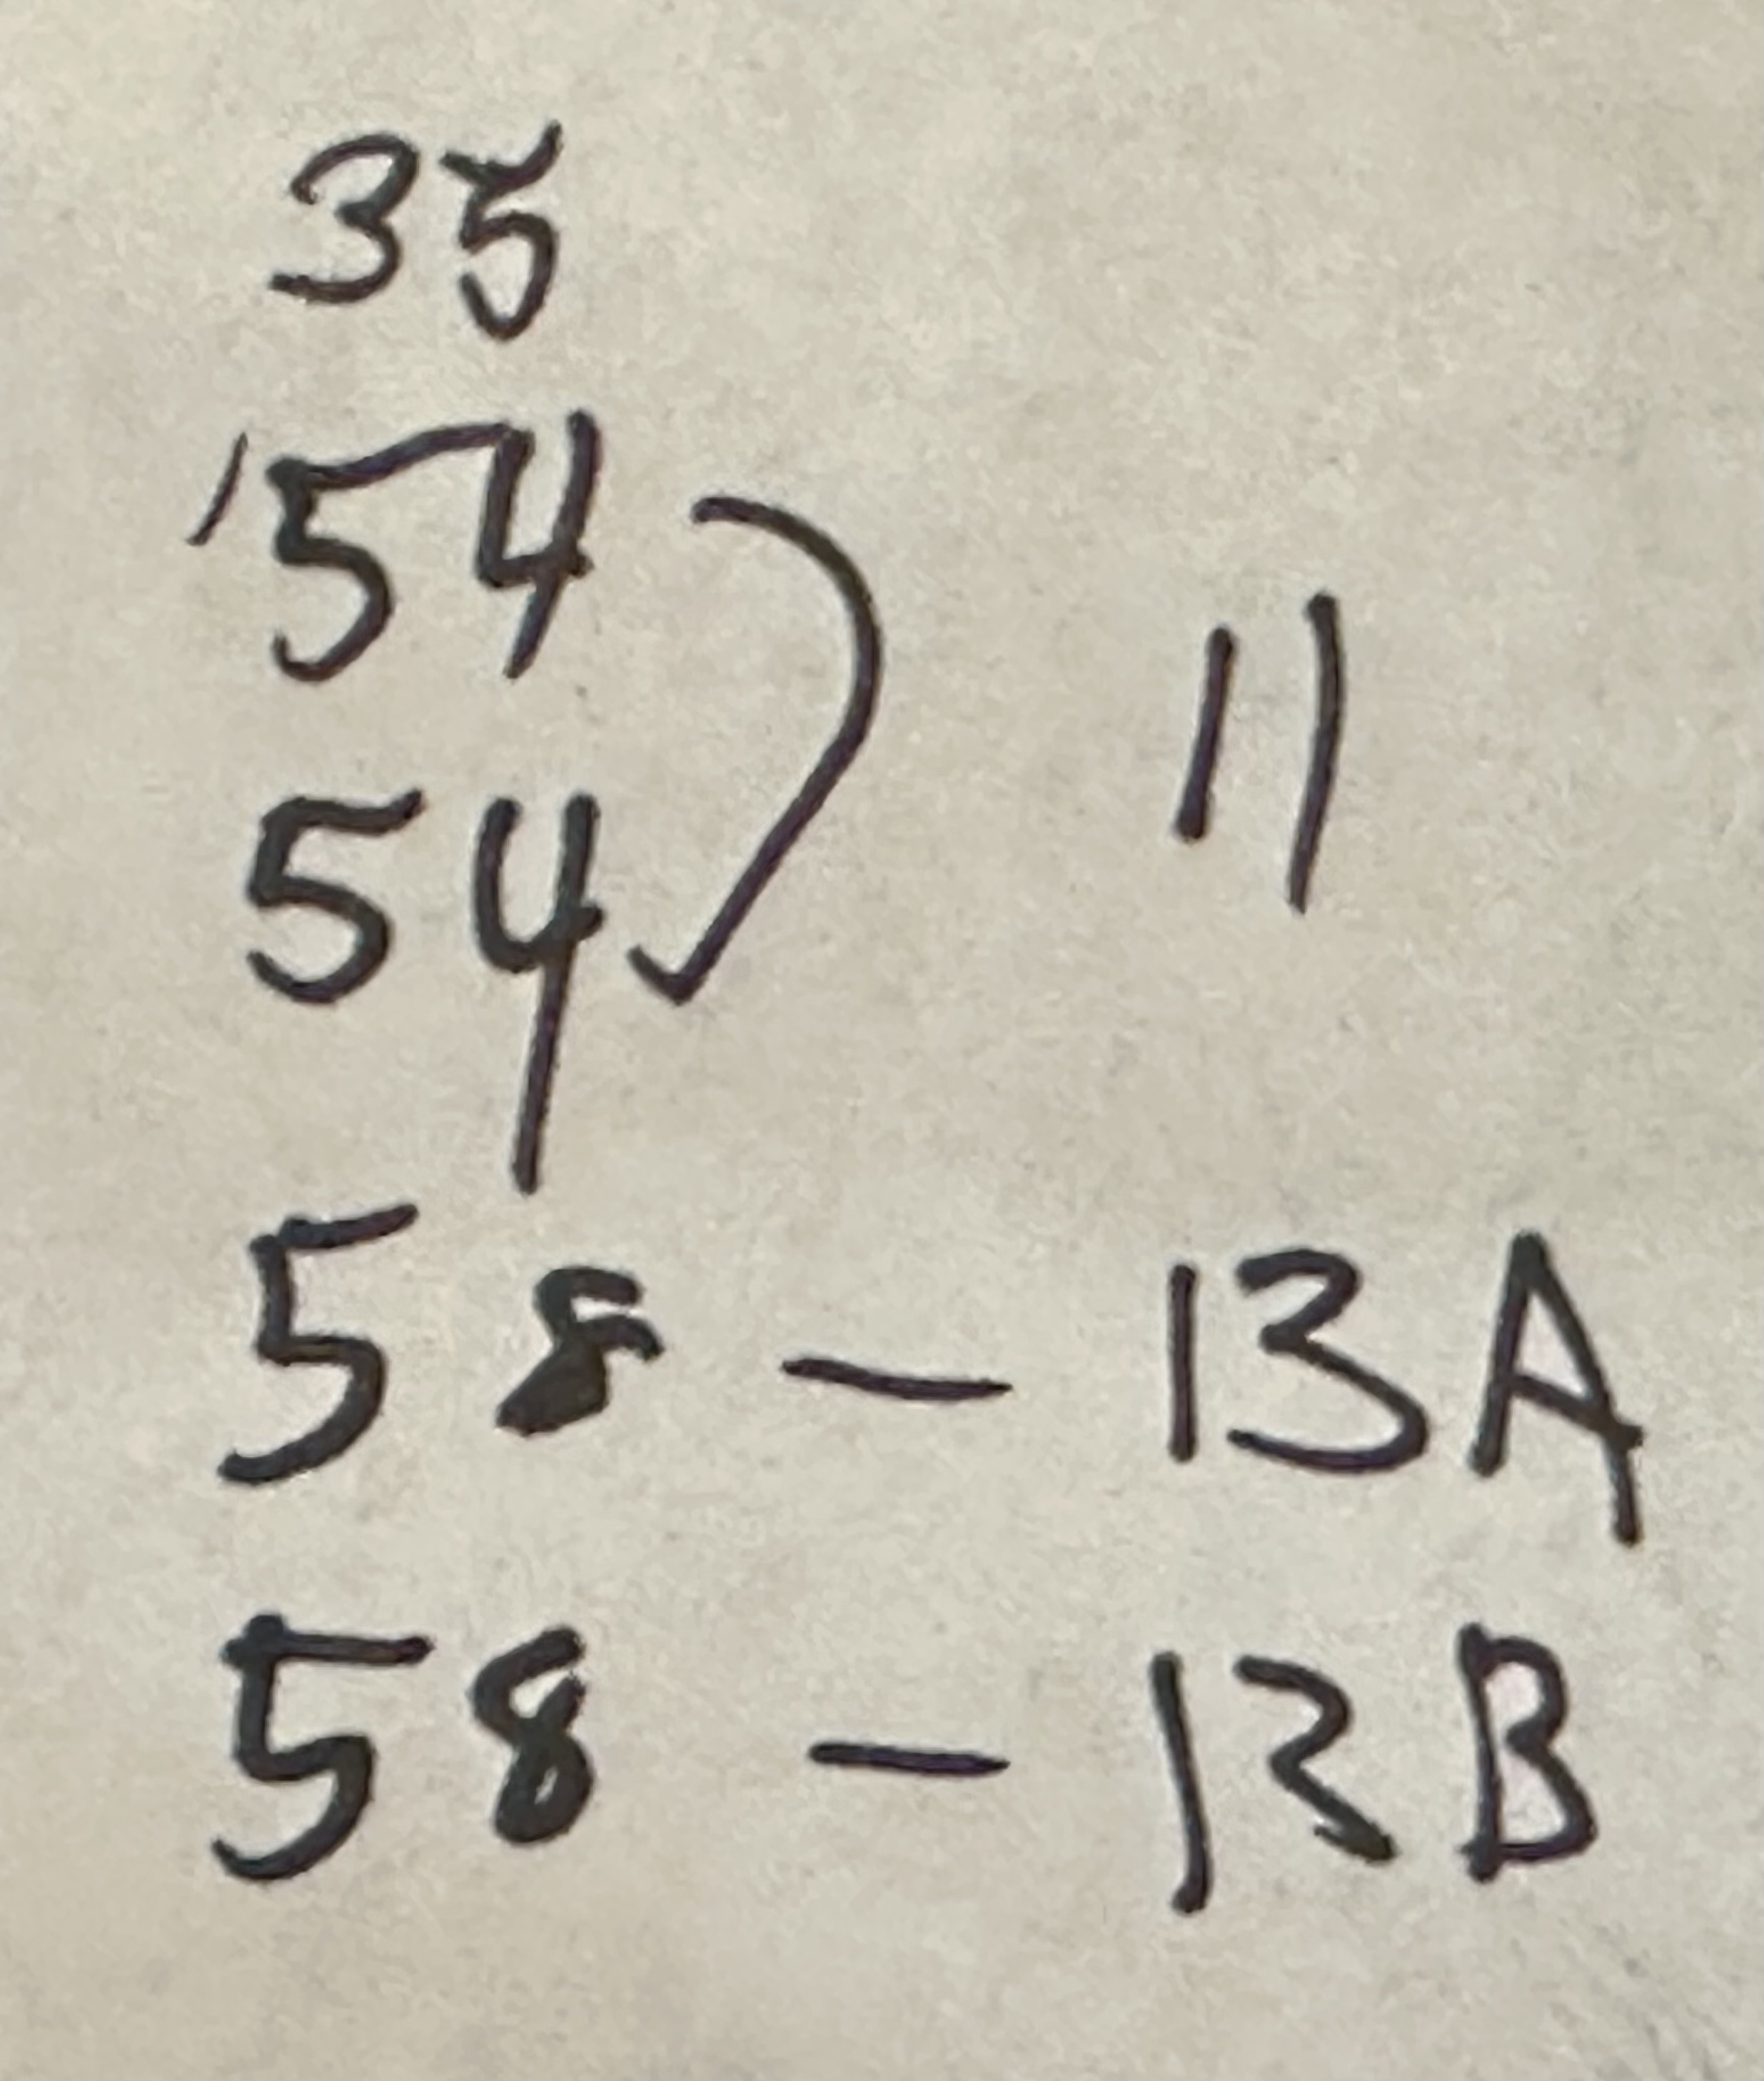 35
54
54
11
58 - 13A
58 - 13B